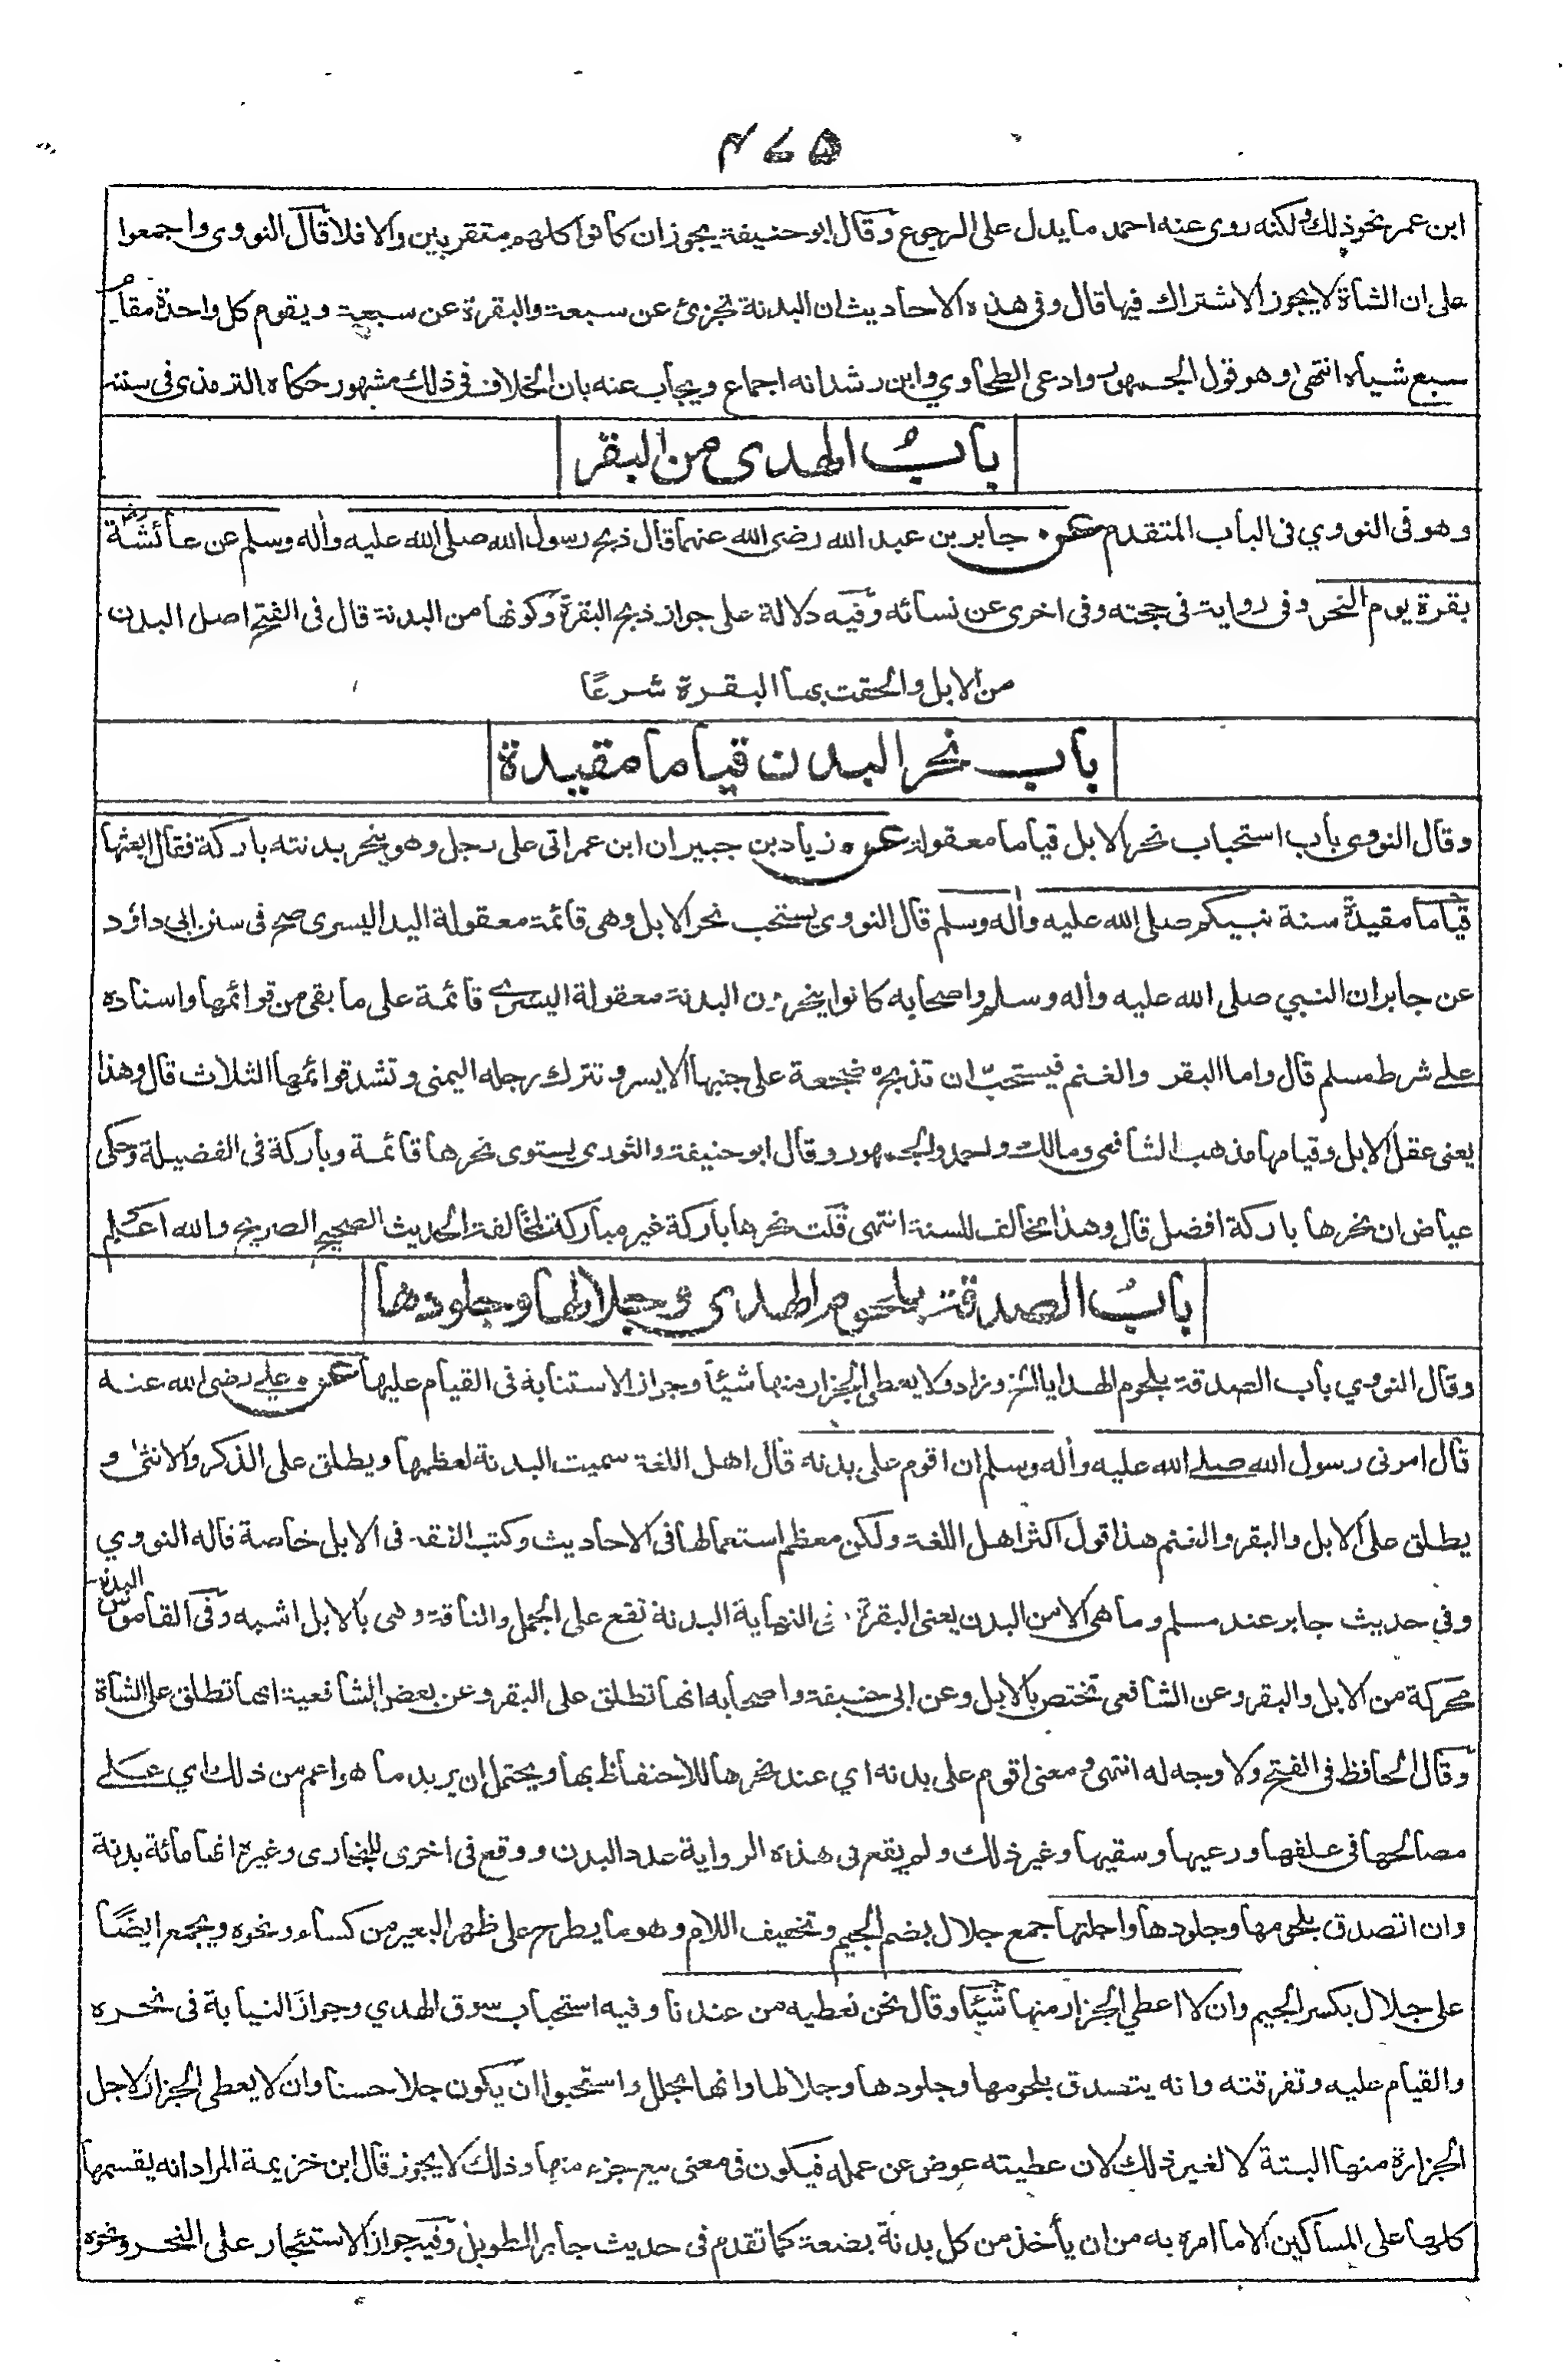 ۴۷۵
ابن عمر نحو ذلك ولكنه روى عنه احمد ما يدل على الرجوع وقال ابو حنيفة يجوز ان كانوا كلهم متقربين والا فلا قال النووي واجمعوا
على ان الشاة لا يجوز الاشتراك فيها قال وفى هذه الاحاديث ان البدنة تجزئ عن سبعة والبقرة عن سبعة ويقوم كل واحدة مقام
سبع شياه انتهى وهو قول الجمهور وادعى الطحاوي وابن رشد انه اجماع ويجاب عنه بان الخلاف فى ذلك مشهور حكاه الترمذى فى سننه
بابُ الهدى من البقر
وهو فى النووي فى الباب المتقدم عن جابر بن عبد الله رضى الله عنهما قال ذبح رسول الله صلى الله عليه وأله وسلم عن عائشة رض
بقرة يوم النحر وفى رواية فى حجته وفى اخرى عن نسائه وفيه دلالة على جواز ذبح البقرة وكونها من البدنة قال فى الفتح اصل البدن
من الابل والحقت بها البقرة شرعًا
باب نحر البدن قياما مقيدة
وقال النووى باب استحباب نحر الابل قياما معقولة عن زياد بن جبير ان ابن عمر اتى على رجل وهو ينحر بدنته باركة فقال ابعثها
قياما مقيدة سنة نبيكم صلى الله عليه وأله وسلم قال النووى يستحب نحر الابل وهى قائمة معقولة اليد اليسرى صح فى سنن ابى داؤد
عن جابر ان النبي صلى الله عليه وأله وسلم واصحابه كانوا ينحرون البدنة معقولة اليسرے قائمة على ما بقى من قوائمها واسناده
علے شرط مسلم قال واما البقر والغنم فيستحبّ ان تذبح مضجعة على جنبها الايسر وتترك رجله اليمنى وتشد قوائمها الثلاث قال وهذا
يعنى عقل الابل وقيامها مذهب الشافعى ومالك واحمد والجمهور وقال ابو حنيفة والثورى يستوى نحرها قائمة وباركة فى الفضيلة وحكى
عياض ان نحرها باركة افضل قال وهذا مخالف للسنة انتهى قلت نحرها باركة غير مباركة لمخالفة الحديث الصحيح الصريح والله اعلم
بابُ الصدقة بلحوم الهدى وجلالها وجلودها
وقال النووي باب الصدقة بلحوم الهدايا الخ وزاد ولا يعطى الجزار منها شيئا وجواز الاستنابة فى القيام عليها عن علے رضى الله عنه
قال امرنى رسول الله صلے الله عليه وأله وسلم ان اقوم على بدنه قال اهل اللغة سميت البدنة لعظمها ويطلق على الذكر والانثى و
يطلق على الابل والبقر والغنم هذا قول اكثر اهل اللغة ولكن معظم استعمالها فى الاحاديث وكتب الفقه فى الابل خاصة قاله النووي
وفي حديث جابر عند مسلم وما هى الا من البدن يعنى البقرة فى النهاية البدنة تقع على الجمل والناقة وهى بالابل اشبه وفى القاموس البدنة
محركة من الابل والبقر وعن الشافعى تختص بالابل وعن ابى حنيفة واصحابه انها تطلق على البقر وعن بعض الشافعية انها تطلق على الشاة
وقال الحافظ فى الفتح ولا وجه له انتهى ومعنى اقوم على بدنه اي عند نحرها للاحتفاظ بها ويحتمل ان يريد ما هو اعم من ذلك اي علے
مصالحها فى علفها ورعيها وسقيها وغير ذلك ولم يقع فى هذه الرواية عدد البدن ووقع فى اخرى للبخارى وغيره انها مائة بدنة
وان اتصدق بلحومها وجلودها واجلتها جمع جلال بضم الجيم وتخفيف اللام وهو ما يطرح على ظهر البعير من كساء ونحوه ويجمع ايضًا
على جلال بكسر الجيم وان لا اعطي الجزار منها شيئا وقال نحن نعطيه من عندنا وفيه استحباب سوق الهدي وجواز النيابة فى نحره
والقيام عليه وتفرقته وانه يتصدق بلحومها وجلودها وجلالها وانها تجلل واستحبوا ان يكون جلا حسنا وان لا يعطى الجزار لاجل
الجزارة منها البتة لا لغير ذلك لان عطيته عوض عن عمله فيكون فى معنى بيع جزء منها وذلك لا يجوز قال ابن خزيمة المراد انه يقسمها
كلها على المساكين الا ما امره به من ان يأخذ من كل بدنة بضعة كما تقدم فى حديث جابر الطويل وفيه جواز الاستئجار على النحر ونحوه